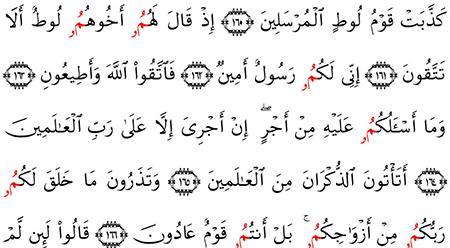 كَذَّبَتْ قَوْمُ لُوطٍ ٱلْمُرْسَلِينَ ۝١٦٠ إِذْ قَالَ لَهُمُۥ أَخُوهُمُۥ لُوطٌ أَلَا
تَتَّقُونَ ۝١٦١ إِنِّى لَكُمُۥ رَسُولٌ أَمِينٌ ۝١٦٢ فَٱتَّقُوا۟ ٱللَّهَ وَأَطِيعُونِ ۝١٦٣
وَمَا أَسْـَٔلُكُمُۥ عَلَيْهِ مِنْ أَجْرٍۖ إِنْ أَجْرِىَ إِلَّا عَلَىٰ رَبِّ ٱلْعَـٰلَمِينَ
۝١٦٤ أَتَأْتُونَ ٱلذُّكْرَانَ مِنَ ٱلْعَـٰلَمِينَ ۝١٦٥ وَتَذَرُونَ مَا خَلَقَ لَكُمُۥ
رَبُّكُمُۥ مِنْ أَزْوَٰجِكُمُۥۚ بَلْ أَنتُمُۥ قَوْمٌ عَادُونَ ۝١٦٦ قَالُوا۟ لَئِن لَّمْ